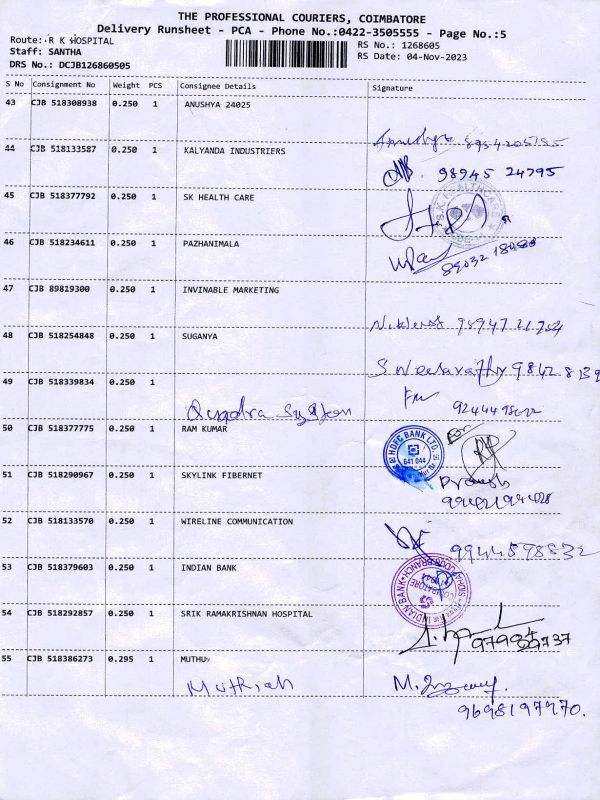 THE PROFESSIONAL COURIERS, COIMBATORE
Delivery Runsheet - PCA - Phone No.:0422-3505555 - Page No.:5
Route: R K HOSPITAL
Staff: SANTHA
DRS No.: DCJB126860505
RS No.: 1268605
RS Date: 04-Nov-2023
S No Consignment No Weight PCS Consignee Details Signature
43 CJB 518308938 0.250 1 ANUSHYA 24025
44 CJB 518133587 0.250 1 KALYANDA INDUSTRIERS
98945 24795
45 CJB 518377792 0.250 1 SK HEALTH CARE
S.K. HEALTHCARE
46 CJB 518234611 0.250 1 PAZHANIMALA
47 CJB 89819300 0.250 1 INVINABLE MARKETING
48 CJB 518254848 0.250 1 SUGANYA
49 CJB 518339834 0.250 1
50 CJB 518377775 0.250 1 RAM KUMAR
HDFC BANK LTD.
641 044
51 CJB 518290967 0.250 1 SKYLINK FIBERNET
52 CJB 518133570 0.250 1 WIRELINE COMMUNICATION
9944598832
53 CJB 518379603 0.250 1 INDIAN BANK
INDIAN BANK
54 CJB 518292857 0.250 1 SRIK RAMAKRISHNAN HOSPITAL
55 CJB 518386273 0.295 1 MUTHU
Muthiah
9698197970.